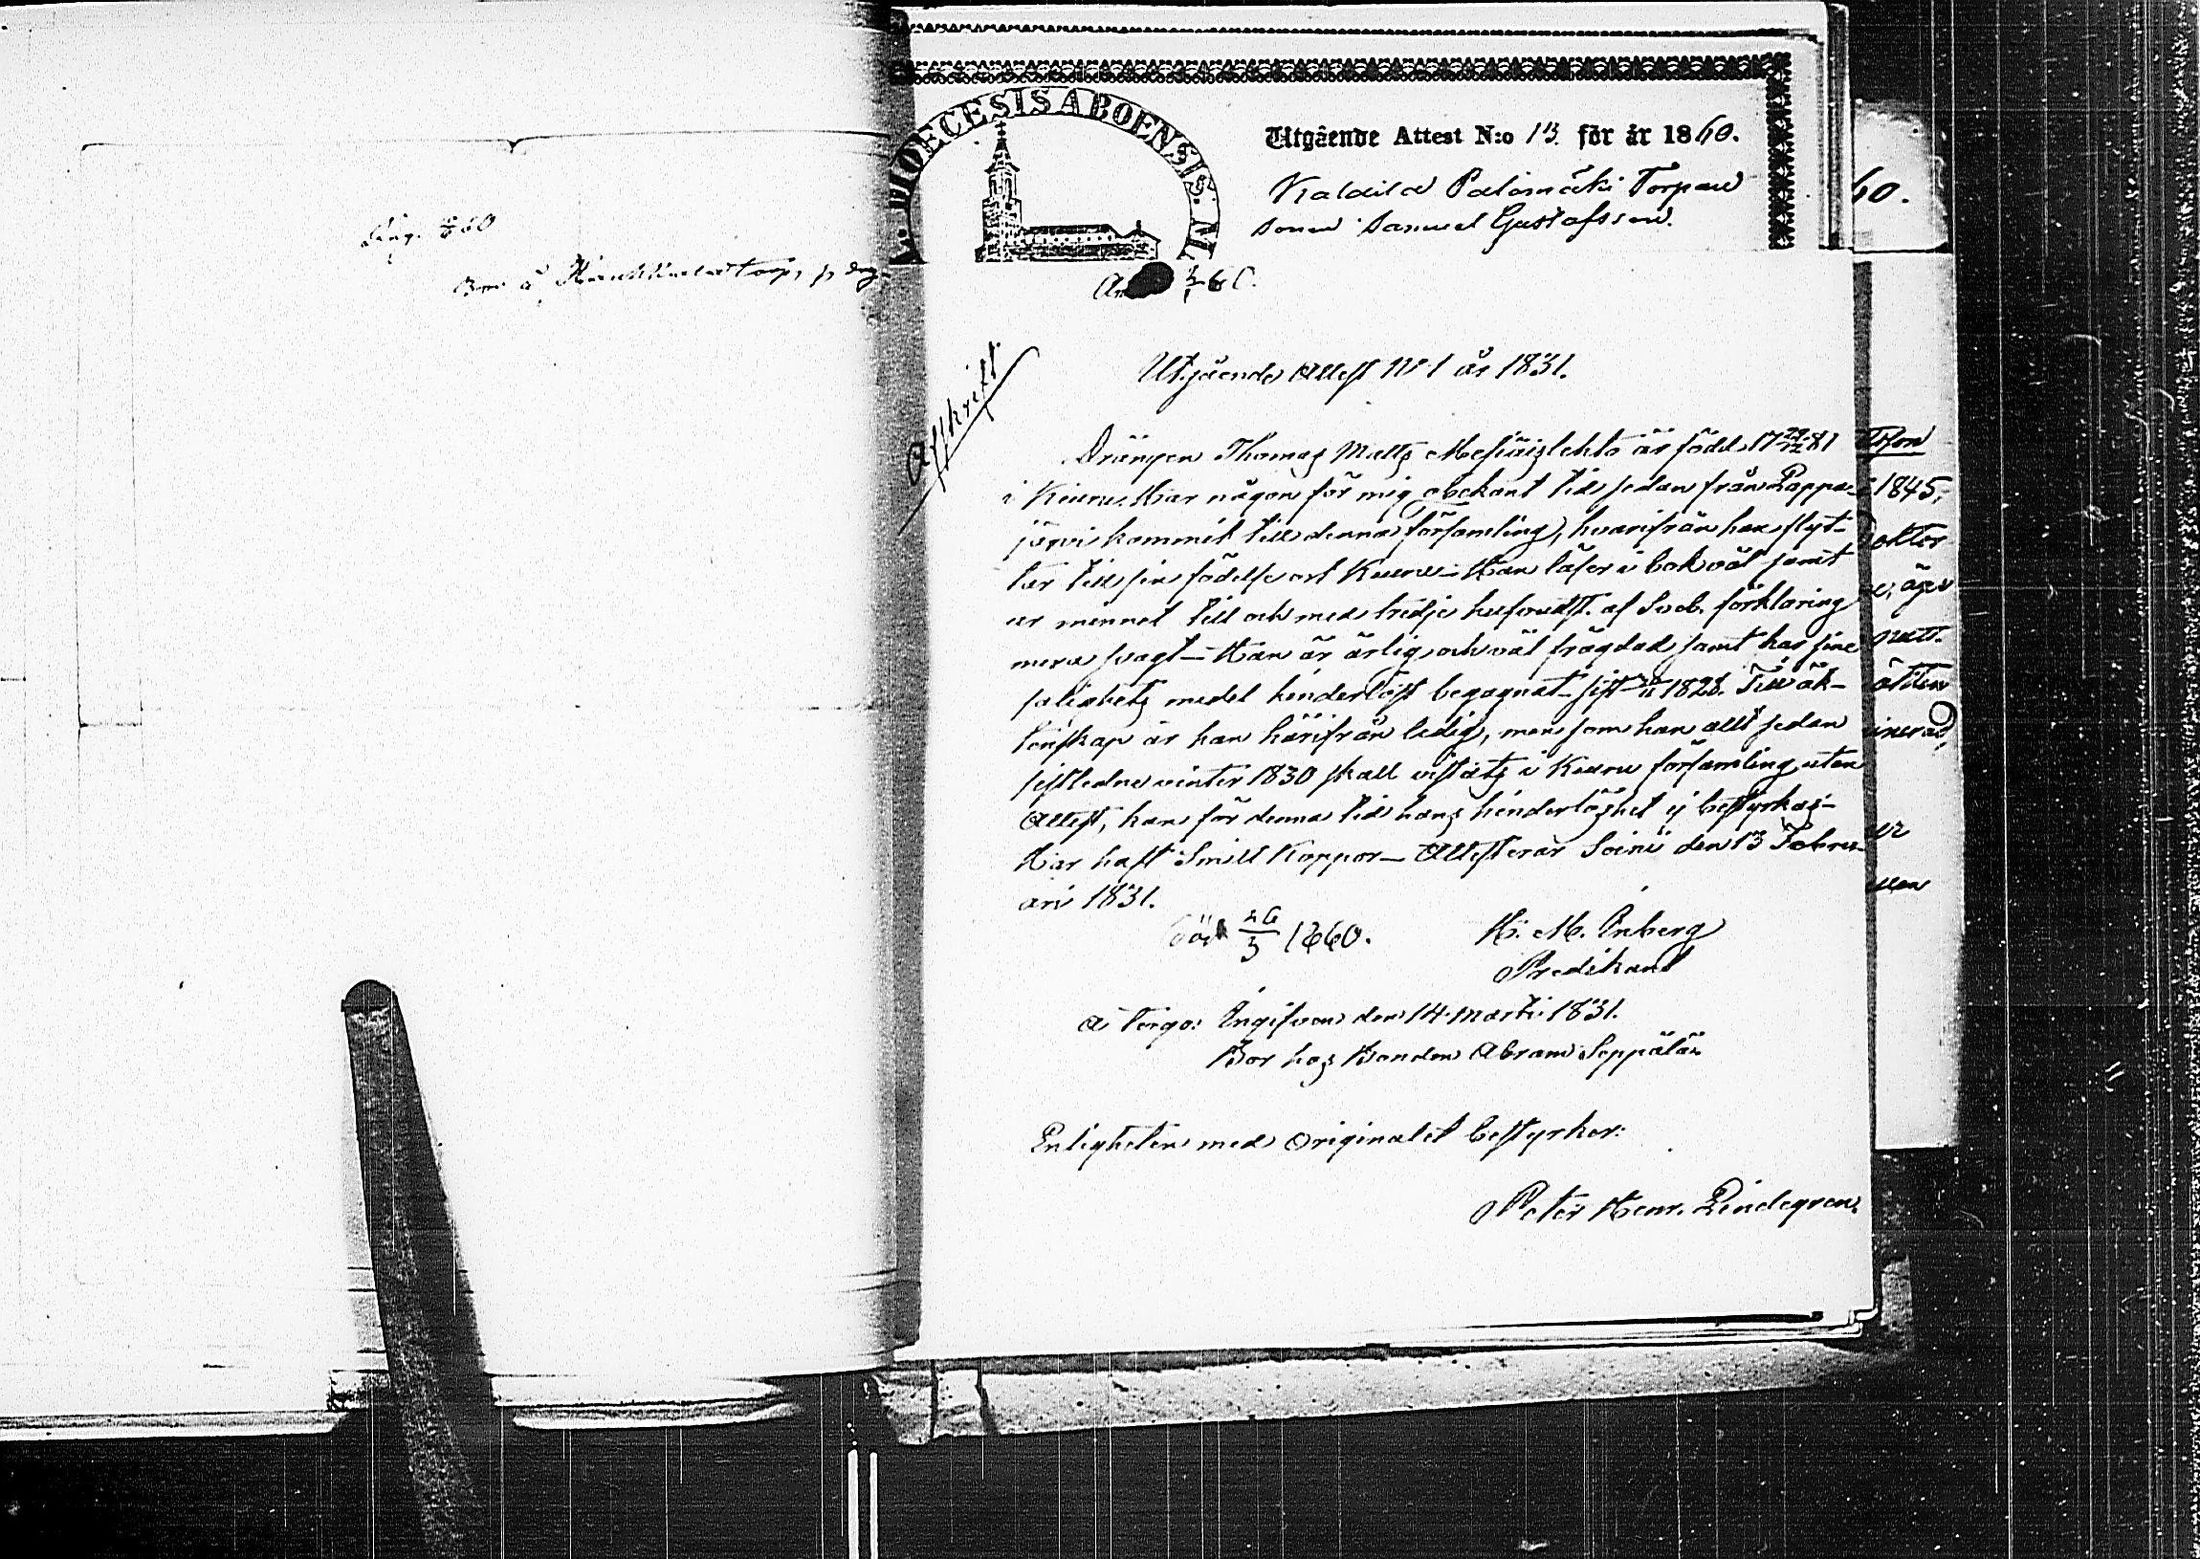 Bor å torp,
DIOECESIS ABOENSIS. M
Utgående Attest N:o 13 för år 1860.
Kaldila Palomäki Torpare
sonen Samuel Gustafsson.
60.
Afskrift
Utgående Attest N:o 1 år 1831.
Drängen Thomas Matts Mesiäislehto är född 17 29/12 81
i Keuru. Har någon för mig obekant tid sedan från Lappa-
järvi kommit till denna församling, hvarifrån han flyt-
tar till sin födelse ort Keuru – Han läser i bok väl samt
ur minnet till och med tredje hufvudst. af Sveb. förklaring
mera svagt – Han är ärlig och väl frägdad samt har sine
salighets medel hinderlöst begagnat sist 1828. Till äk-
tenskap är han härifrån ledig, men som han allt sedan
sistledne vinter 1830 skall vistats i Keuru församling utan
Attest, kan för denna tid hans hinderlöshet ej bestyrkas –
Har haft Smitt Koppor – Attesterar Soini den 13 Febru-
ari 1831.
Död 26/3 1860.
H. M. Enberg
Predikant
a tergo: Ingifven den 14 Martii 1831.
Bor hos Bonden Abram Seppälä
Enligheten med Originalet bestyrker:
Peter Henr. Lindegren.
1845,
oktor
äger